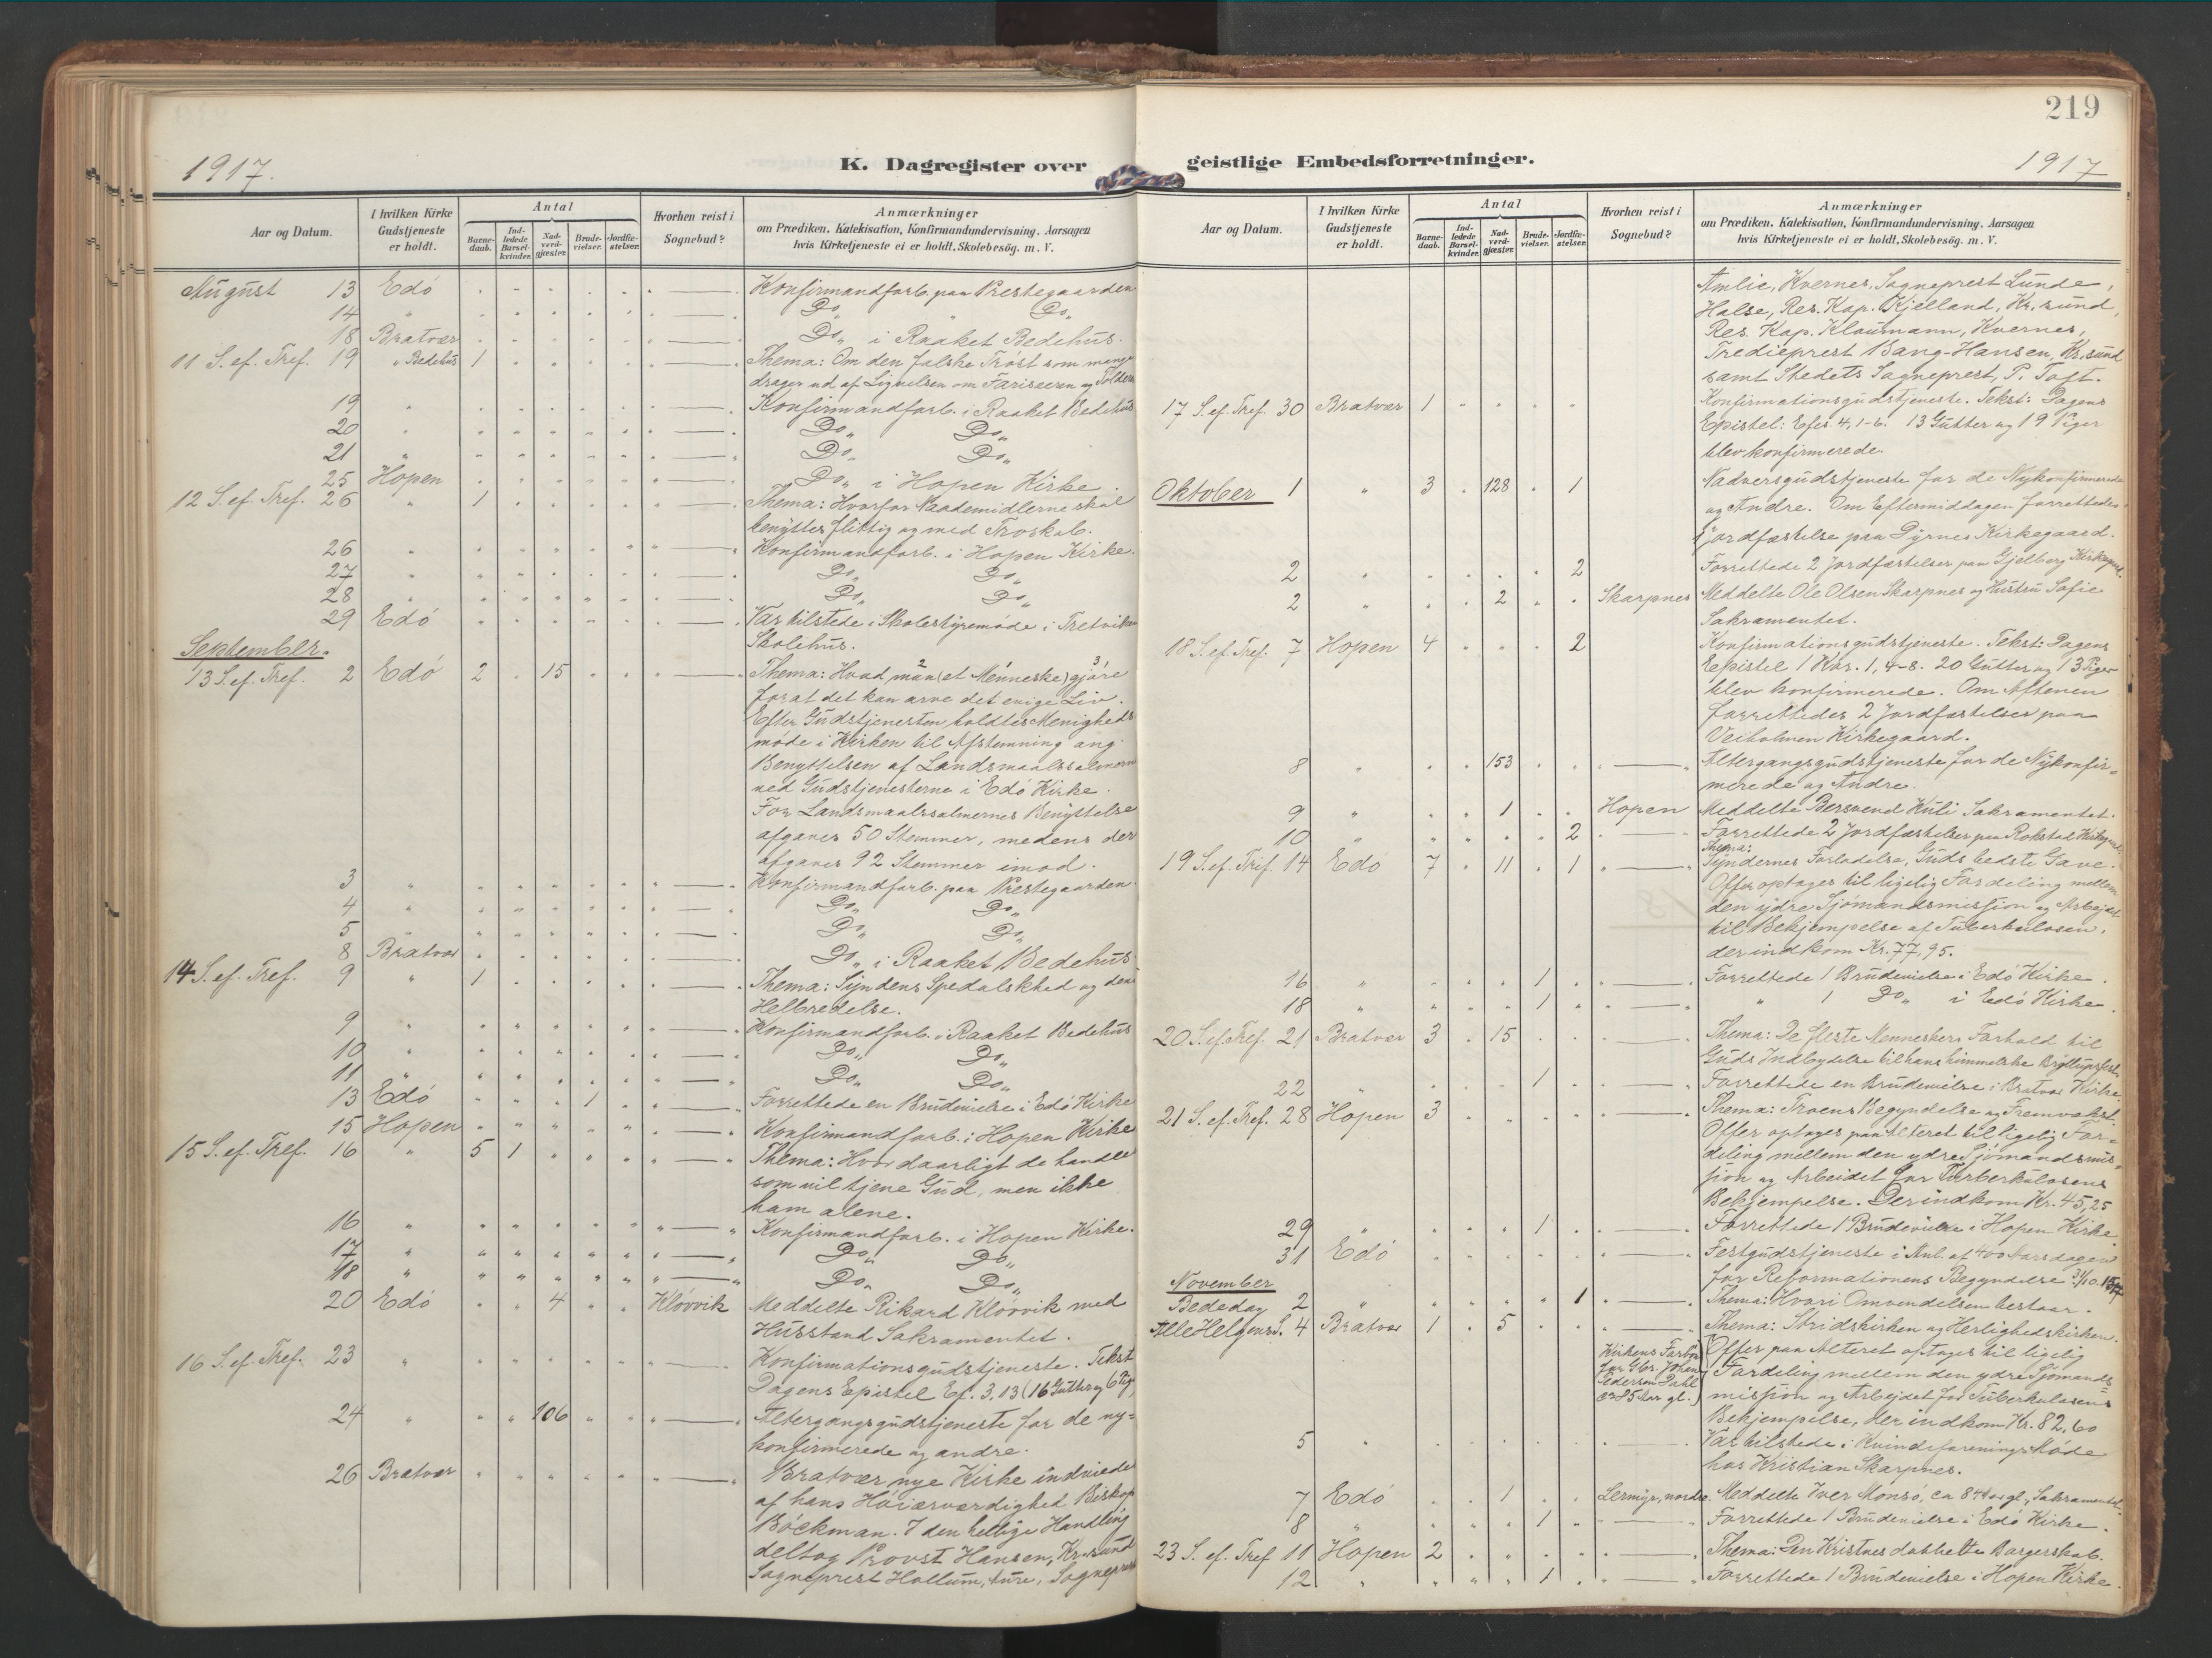 219
1917.
K. Dagregister over geistlige Embedsforretninger.
1917
Aar og Datum.
I hvilken Kirke Gudstjeneste er holdt.
Antal
Barnedaab.
Indledede Barselkvinder.
Nadverdgjæster.
Brudevielser.
Jordfæstelser.
Hvorhen reist i Sognebud?
Anmærkninger
om Prædiken, Katekisation, Konfirmandundervisning, Aarsagen
hvis Kirketjeneste ei er holdt, Skolebesög. m. V.
August 13 Edö Konfirmandforb. paa Prestegaarden
14 " Do„ Do„
18 Bratvær Do„ i Raaket Bedehus.
11 S. ef. Tref. 19 " Bedehus 1 Thema: Om den falske Tröst som mange
drager ud af Lignelsen om Fariseeren og Tolderen
19 " Konfirmandforb. i Raaket Bedehus
20 " Do„ Do„
21 " Do„ Do„
25 Hopen Do„ i Hopen Kirke.
12 S. ef. Tref. 26 " 1 Thema: Hvorfor Naademidlerne skal
benyttes flittig og med Troskab.
26 " Konfirmandforb. i Hopen Kirke.
27 " Do„ Do„
28 " Do„ Do„
29 Edö Var tilstede i Skolestyremöde i Tretviken
Skolehus.
September.
13 S. ef. Tref. 2 Edö 2 15 Thema: Hvad man (et Menneske) gjöre
2 3
forat det kan arve det evige Liv.
Efter Gudstjenesten holdtes Menigheds
möde i Kirken til Afstemning ang.
Benyttelsen af Landsmaalssalmerne
ved Gudstjenesterne i Edö Kirke.
For Landsmaalssalmernes Benyttelse
afgaves 50 Stemmer, medens der
afgaves 92 Stemmer imod.
3 " Konfirmandforb. paa Prestegaarden.
4 " Do„ Do„
5 " Do„ Do„
8 Bratvær Do„ i Raaket Bedehus
14 S. ef. Tref. 9 " 1 Thema: Syndens Spedalskhed og dens
Helbredelse.
9 " Konfirmandforb. i Raaket Bedehus
10 " Do„ Do„
11 " Do„ Do„
13 Edö 1 Forrettede en Brudevielse i Edö Kirke
15 Hopen Konfirmandforb. i Hopen Kirke
15 S. ef. Tref. 16 " 5 1 Thema: Hvor daarligt de handler
som vil tjene Gud, men ikke
ham alene.
16 " Konfirmandforb. i Hopen Kirke.
17 " Do„ Do„
18 " Do„ Do„
20 Edö 4 Klövvik Meddelte Rikard Klövvik med
Husstand Sakramentet.
16 S. ef. Tref. 23 " Konfirmationsgudstjeneste. Tekst
Dagens Epistel Ef. 3.13 (16 Gutter og 6 Piger)
24 " 106 Altergangsgudstjeneste for de ny=
konfirmerede og andre.
26 Bratvær Bratvær nye Kirke indviedes
af hans Höiærværdighed Biskop
Böckman. I den hellige Handling
deltog Provst Hansen, Kr.sund
Sogneprest Hollum, Aure, Sogneprest
Aar og Datum.
I hvilken Kirke Gudstjeneste er holdt.
Antal
Barnedaab.
Indledede Barselkvinder.
Nadverdgjæster.
Brudevielser.
Jordfæstelser.
Hvorhen reist i Sognebud?
Anmærkninger
om Prædiken, Katekisation, Konfirmandundervisning, Aarsagen
hvis Kirketjeneste ei er holdt, Skolebesög. m. V.
Amlie, Kvernes, Sogneprest Lunde,
Halse, Res. Kap. Kjelland, Kr.sund,
Res. Kap. Klaumann, Kvernes,
Tredieprest Bang-Hansen, Kr.sund
samt Stedets Sogneprest, P. Toft.
17 S. ef. Tref. 30 Bratvær 1 Konfirmationsgudstjeneste. Tekst: Dagens
Epistel: Efes. 4, 1-6. 13 Gutter og 19 Piger
blev konfirmerede.
Oktober 1 " 3 128 1 Nadversgudstjeneste for de Nykonfirmerede
og Andre. Om Eftermiddagen forrettedes
1 jordfæstelse paa Dyrnes Kirkegaard.
2 " 2 Forrettede 2 Jordfæstelser paa Gjelberg Kirkegaard.
2 " 2 Skarpnes Meddelte Ole Olsen Skarpnes og Hustru Sofie
Sakramentet.
18 S. ef. Tref. 7 Hopen 4 2 Konfirmationsgudstjeneste. Tekst: Dagens
Epistel 1 Kor. 1, 4-8. 20 Gutter og 13 Piger
blev konfirmerede. Om Aftenen
forrettedes 2 Jordfæstelser paa
Veiholmen Kirkegaard.
8 " 153 Altergangsgudstjeneste for de Nykonfir=
merede og Andre.
9 " 1 Hopen Meddelte Bersvend Kuli Sakramentet.
10 " 2 Forrettede 2 Jordfæstelser paa Rokstad Kirkegaard.
19 S. ef. Tref. 14 Edö 7 11 1 Thema: Syndernes Forladelse, Guds bedste Gave.
Offer optages til ligelig Fordeling mellem
den ydre Sjömandsmission og Arbejdet
til Bekjempelse af Tuberkulosen,
der indkom Kr. 77,95.
16 " 1 Forrettede 1 Brudevielse i Edö Kirke.
18 " 1 " 1 Do„ i Edö Kirke.
20 S. ef. Tref. 21 Bratvær 3 15 Thema: De fleste Menneskers Forhold til
Guds Indbydelse til hans himmelske Bryllupsfest.
22 " 1 Forrettede en Brudevielse i Bratvær Kirke.
21 S. ef. Tref. 28 Hopen 3 Thema: Troens Begyndelse og Fremvækst.
Offer optages paa Alteret til ligelig For=
deling mellem den ydre Sjömandsmis=
sion og Arbeidet for Tuberkulosens
Bekjempelse. Der indkom Kr. 45,25
29 " 1 Forrettede 1 Brudevielse i Hopen Kirke.
31 Edö Festgudstjeneste i Anl. af 400 Aarsdagen
for Reformationens Begyndelse 31/10. 1517
November
Bededag 2 " 1 Thema: Hvori Omvendelsen bestaar.
Alle Helgens S. 4 Bratvær 1 5 Thema: Stridskirken og Herlighedskirken.
Kirkens Forbön for Gbr. Johan Pederson Dahl ca 85 Aar gl.)
Offer paa Alteret optages til ligelig
Fordeling mellem den ydre Sjömands=
mission og Arbejdet for Tuberkulosens
Bekjempelse, der indkom Kr. 82,60
5 " Var tilstede i Kvindeforenings Möde
hos Kristian Skarpnes.
7 Edö 1 Lermyr, nordre. Meddelte Iver Monsö, ca 84 Aar gl., Sakramentet.
8 " 1 Forrettede 1 Brudevielse i Edö Kirke.
23 S. ef. Tref 11 Hopen 2 Thema: Den Kristnes dobbelte Borgerskab.
12 " 1 Forrettede 1 Brudevielse i Hopen Kirke.